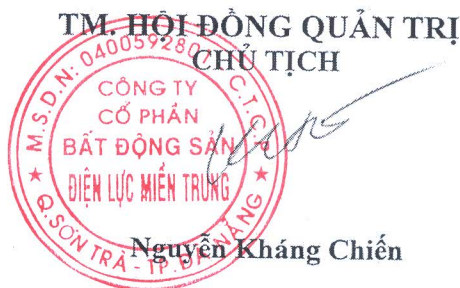 TM. HỘI ĐỒNG QUẢN TRỊ
CHỦ TỊCH
M.S.D.N: 0400592807 - C.T.C.P
CÔNG TY
CỔ PHẦN
BẤT ĐỘNG SẢN
ĐIỆN LỰC MIỀN TRUNG
Q.SƠN TRÀ - TP. ĐÀ NẴNG
Nguyễn Kháng Chiến